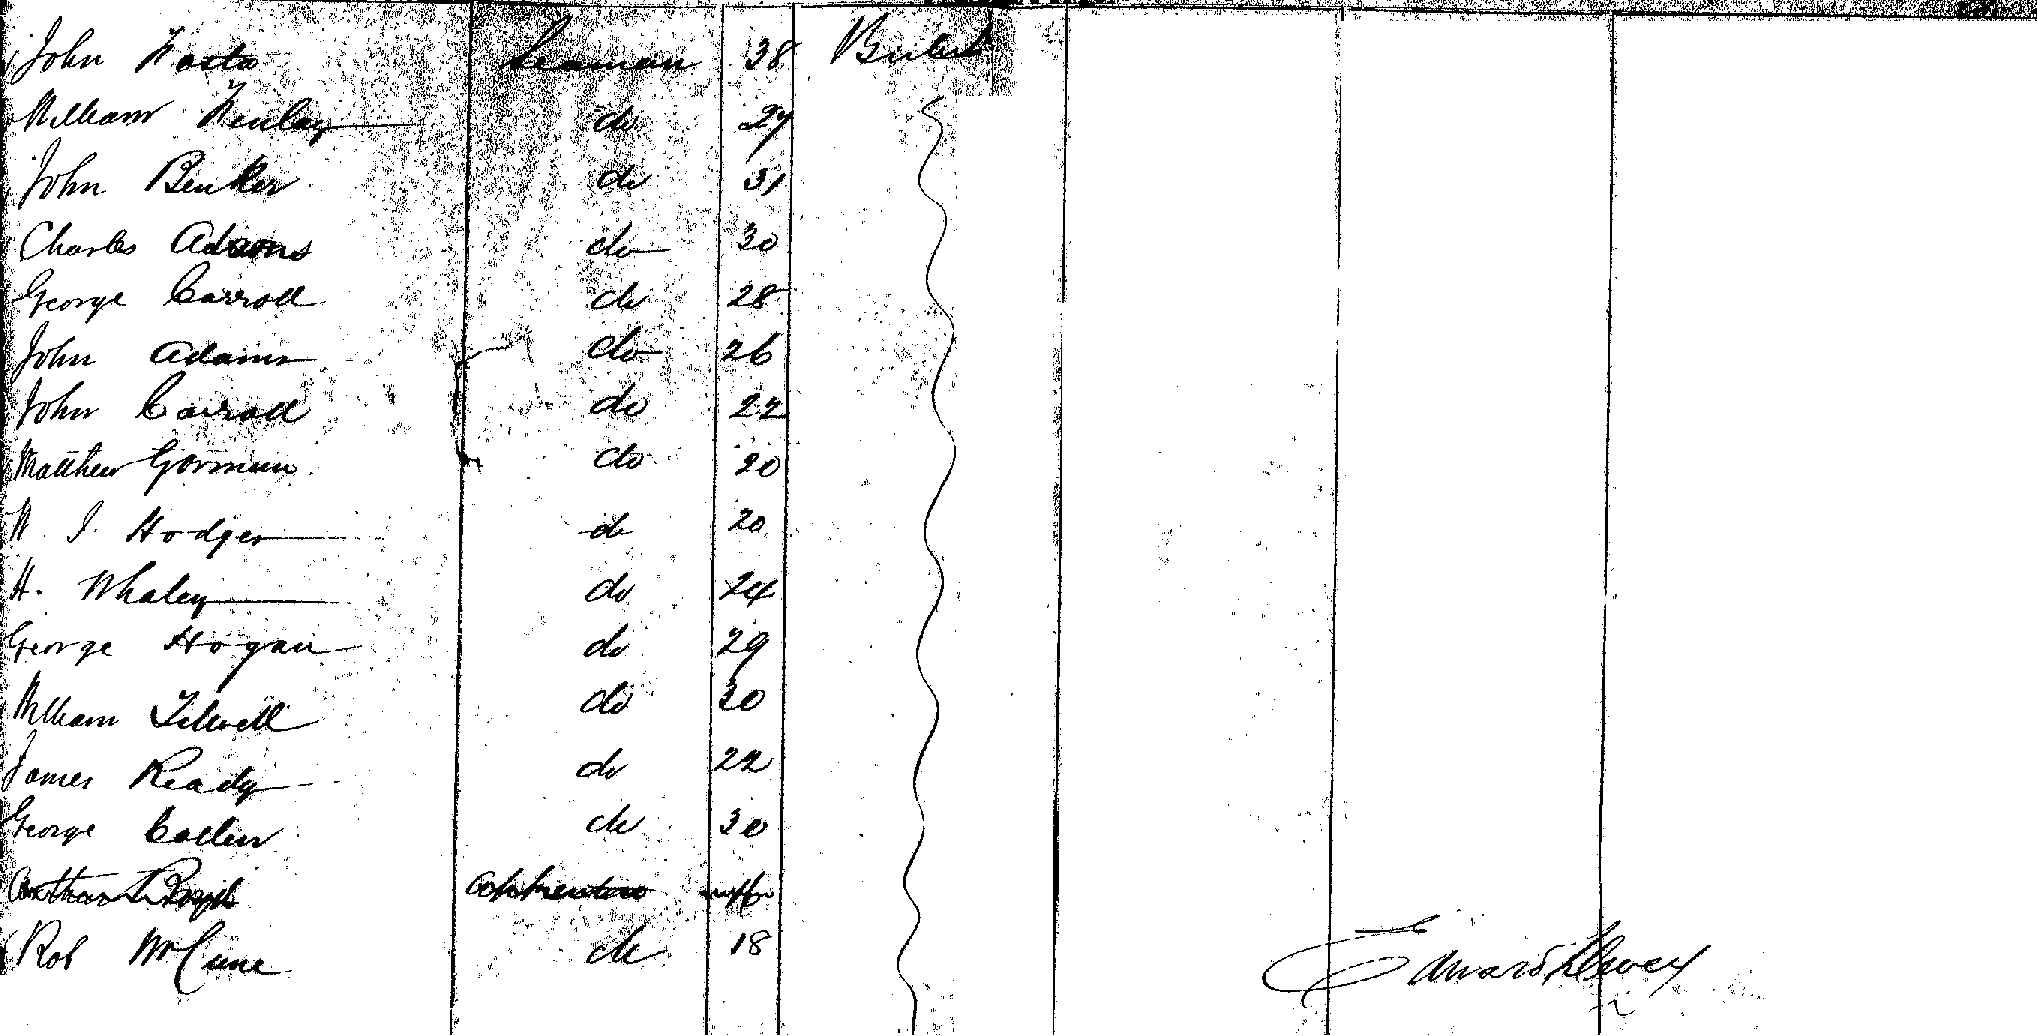 John
Seaman 38 British
William do 27
John Benker do 31
Charles Adams do 30
George Carroll do 28
John Adams do 26
John Carroll do 22
Matthew Gorman do 20
W. J. Hodges do 20
H. Whaley do 24
George Hogan do 29
William do 30
James Ready do 22
George Cullen do 30
Rob McCune do 18
Edward